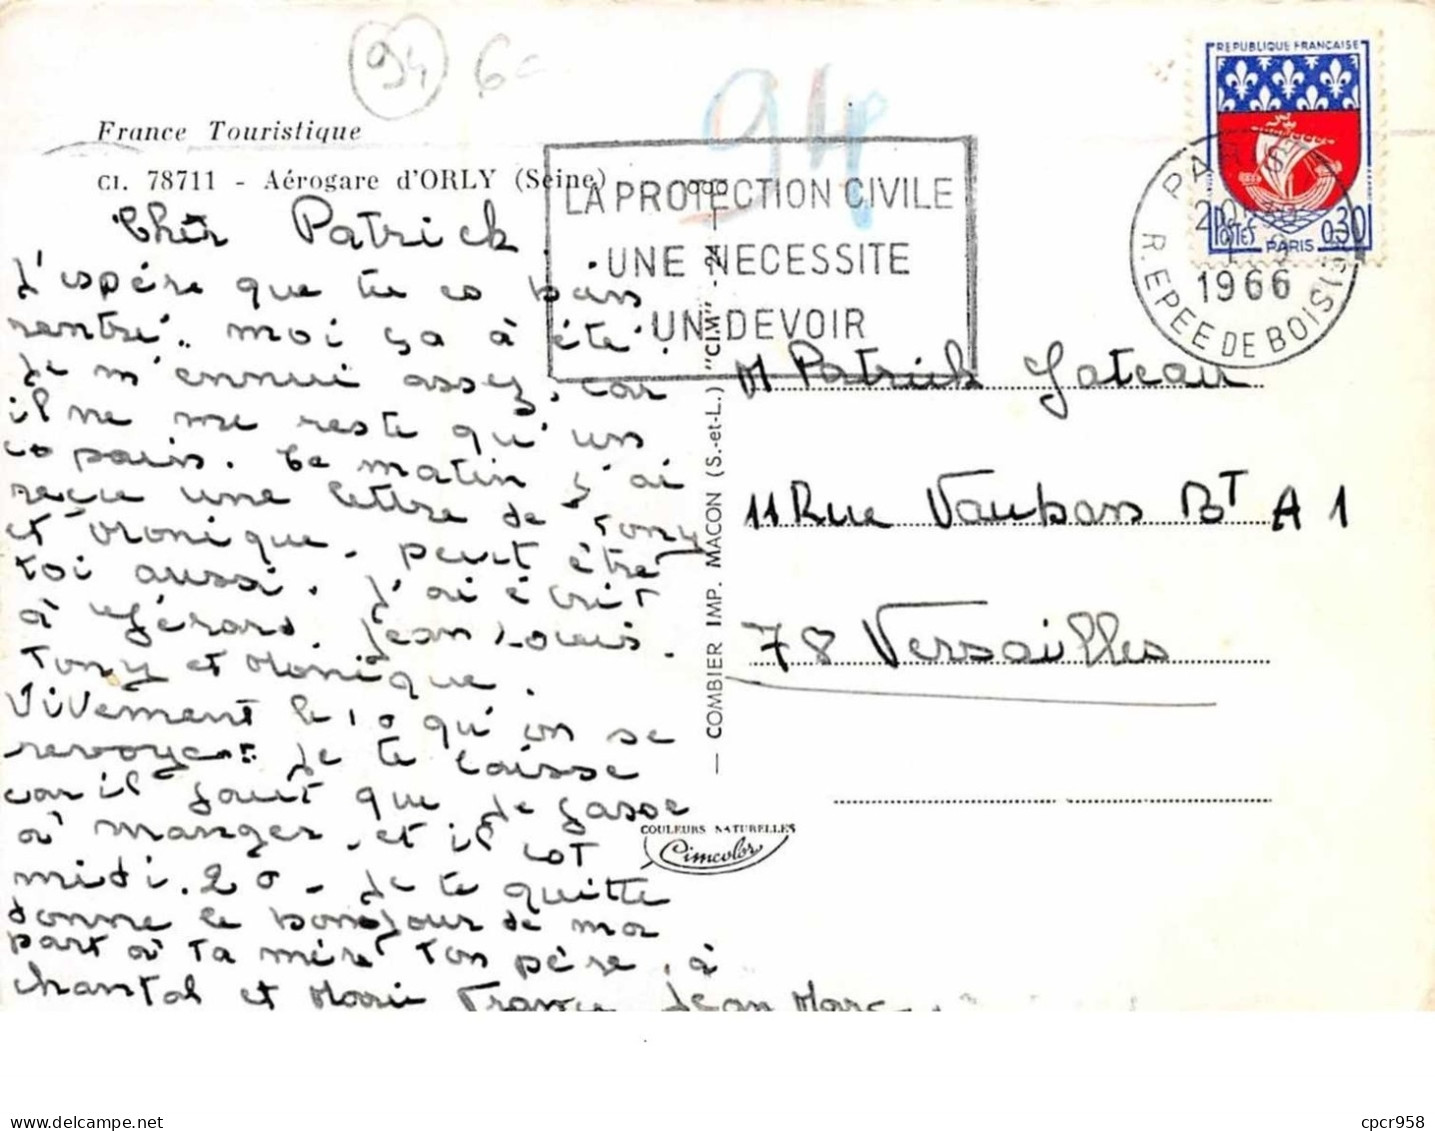 94 6
94
France Touristique
CI. 78711 - Aérogare d'ORLY (Seine)
REPUBLIQUE FRANCAISE
POSTES PARIS 0,30
LA PROTECTION CIVILE
UNE NECESSITE
UN DEVOIR
PARIS
1966
R. EPEE DE BOIS (5e)
Cher Patrick
J'espére que tu es bien
rentré. moi ça à été.
Je m'ennui assez, car
il ne me reste qu'un
copain. Ce matin j'ai
reçu une lettre de Tony
et Monique. peut être
toi aussi. J'ai écrit
à Gérard, Jean Louis.
Tony et Monique.
Vivement le 10 qu'on se
revoye. Je te laisse
car il faut que je fasse
à manger, et il est
midi. 20 - Je te quitte
donne le bonjour de ma
part à Ta mère ton père, à
chantal et Marie France Jean Marc
— COMBIER IMP. MACON (S.-et-L.) "CIM" - 24 —
M Patrick Gateau
11 Rue Vauban BT A 1
78 Versailles
COULEURS NATURELLES
Cimcolor
cpcr958